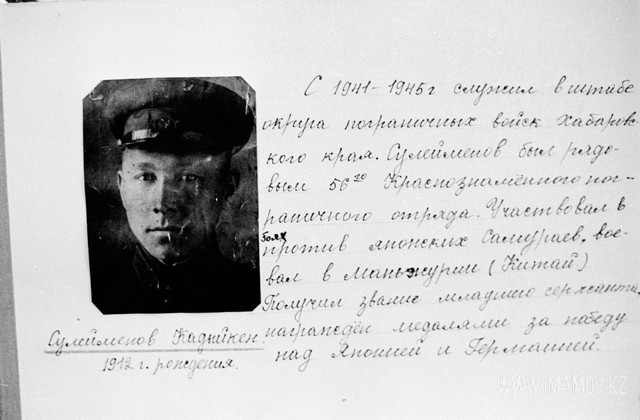 С 1941-1945г служил в штабе
округа пограничных войск Хабаровс-
кого края. Сулейменов был рядо-
вым 56го Краснознамённого пог-
раничного отряда. Участвовал в
боях
против японских самураев, вое-
вал в Маньчжурии (Китай)
Получил звание младшего сержанта.
награждён медалями за победу
над Японией и Германией.
Сулейменов Кадыйкен
1912 г. рождения.
WWW.MAMOV.KZ